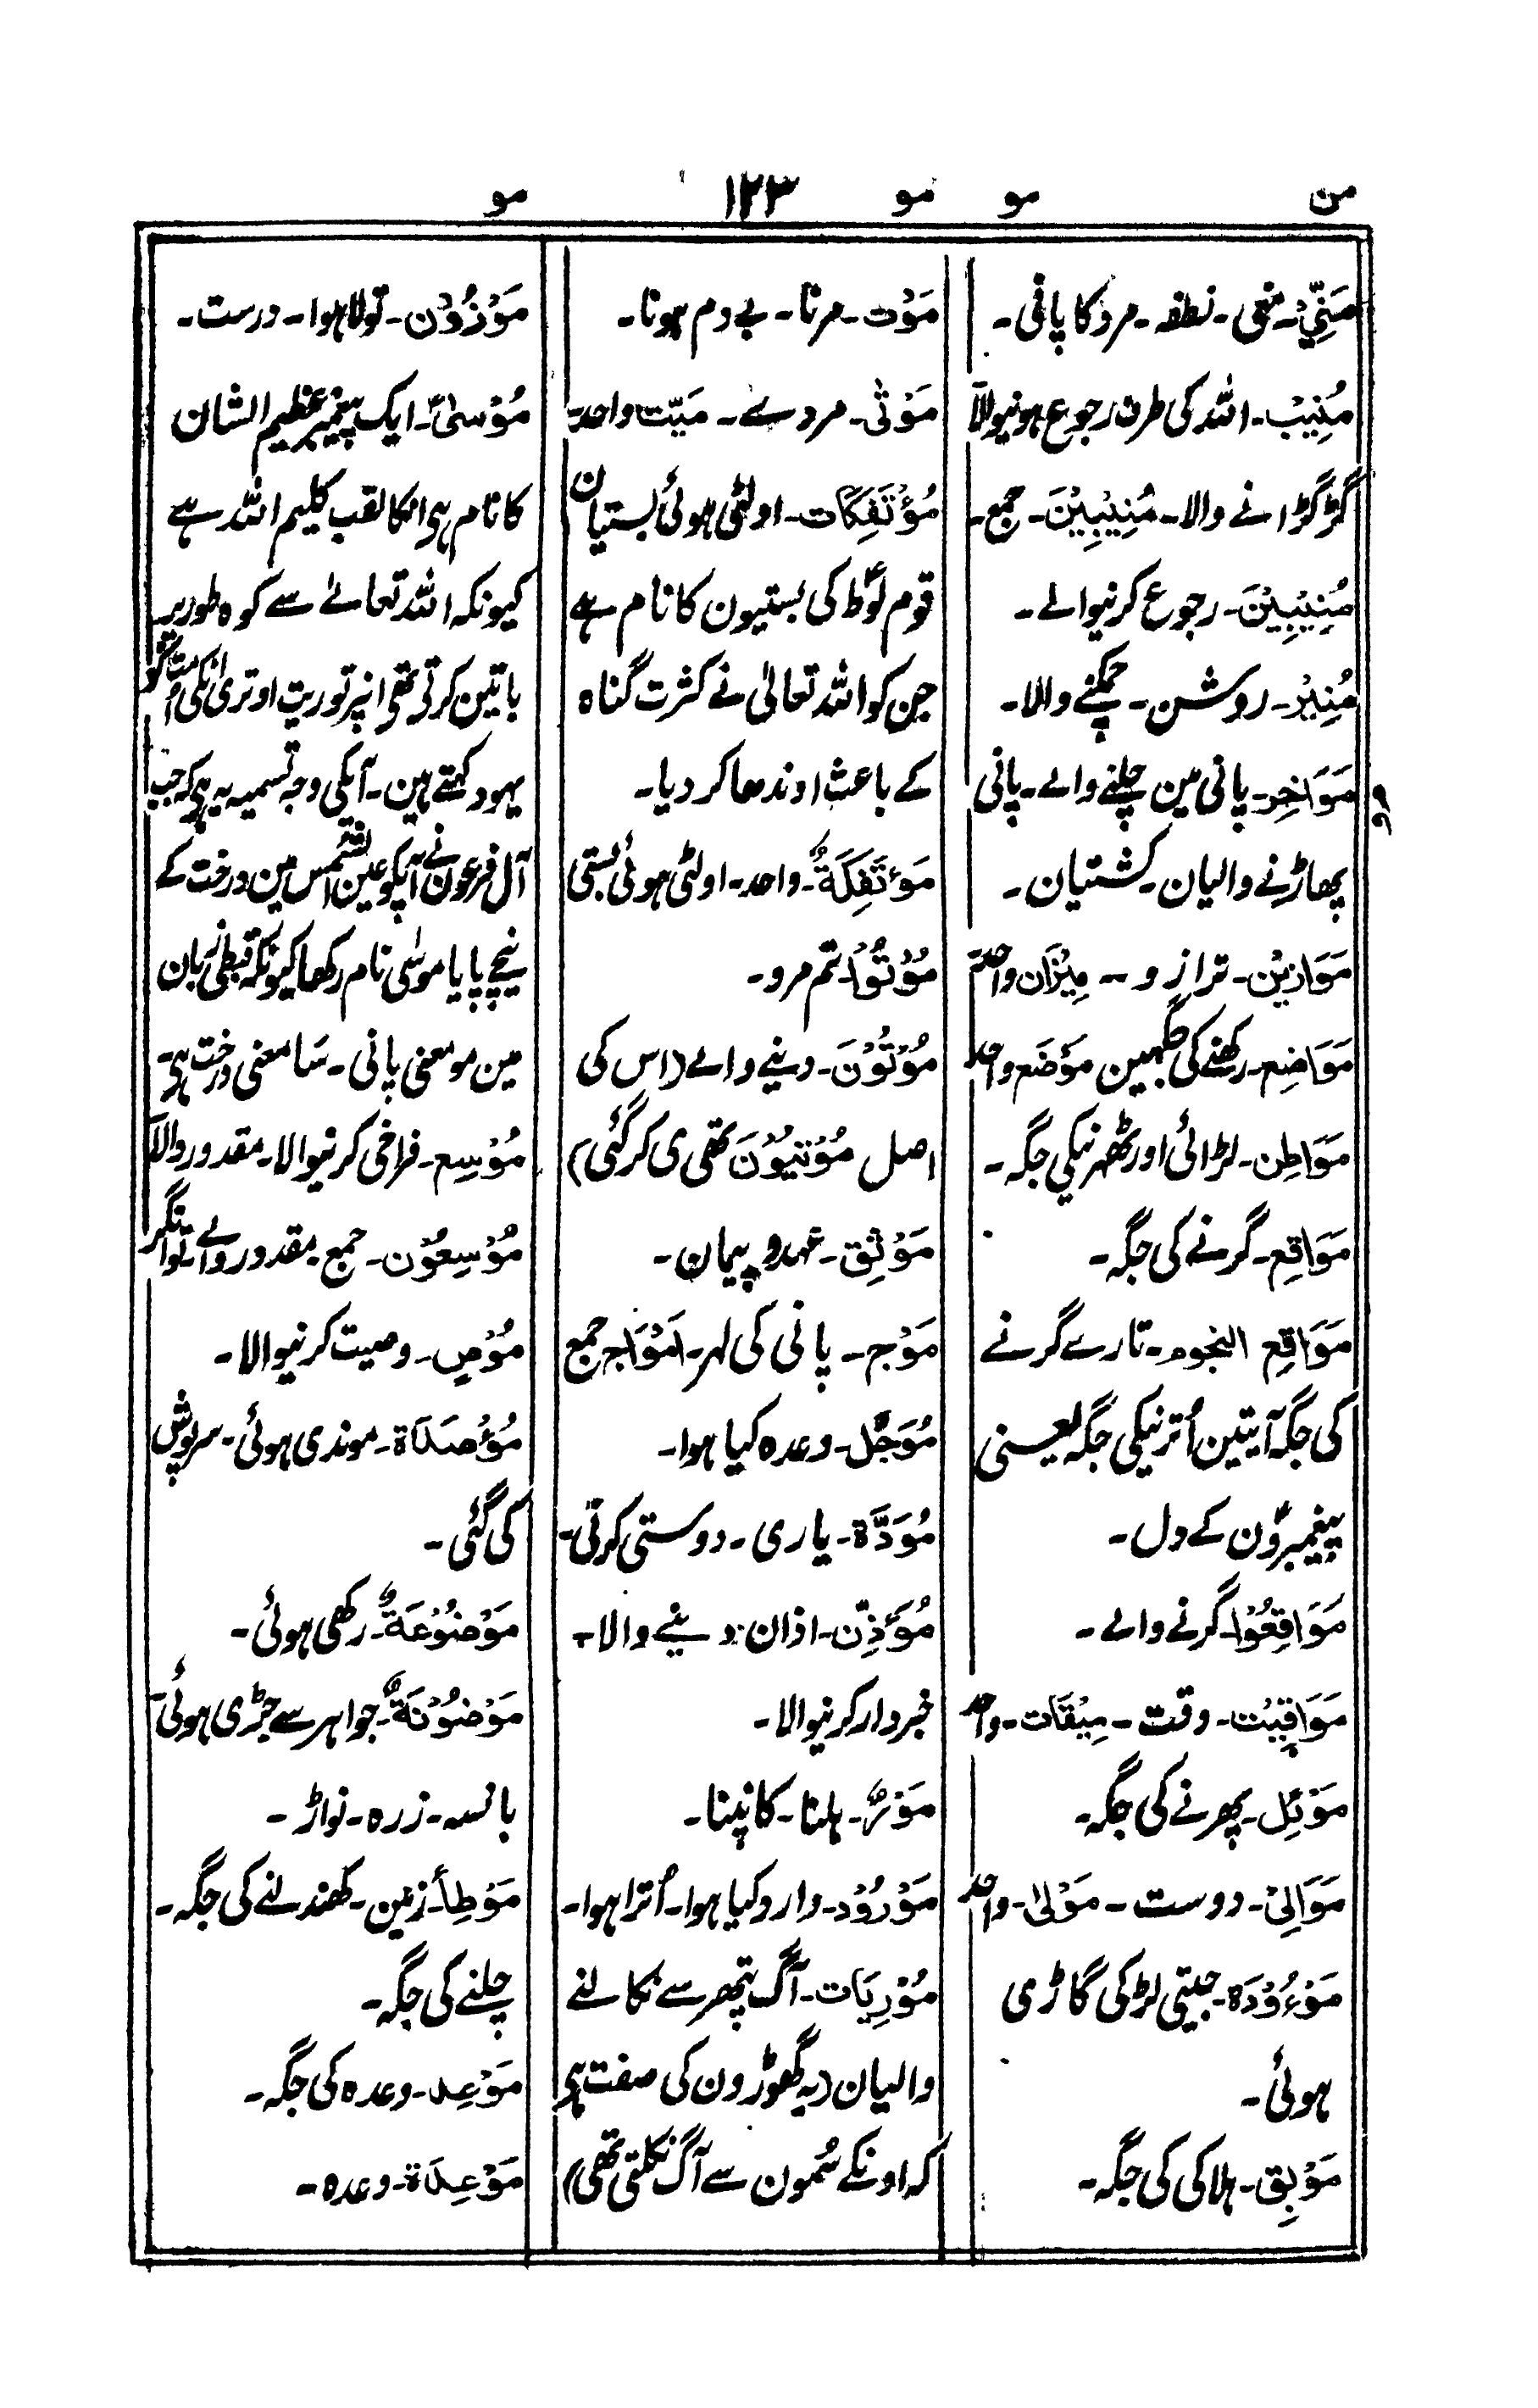 من مو مو ۱۲۳ مو
مَنِیٌّ۔ منی۔ نطفہ۔ مرد کا پانی۔
مُنِیْب۔ اللہ کی طرف رجوع ہونیوالا
گڑگڑانے والا۔ مُنِیْبِیْنَ۔ جمع۔
مُنِیْبِیْنَ۔ رجوع کرنیوالے۔
مُنِیْرٌ۔ روشن۔ چمکنے والا۔
مو
مَوَاخِر۔ پانی مین چلنے والے۔ پانی
پھاڑنے والیان۔ کشتیان۔
مَوَازِیْن۔ ترازو۔ مِیْزَان واحد
مَوَاضِع۔ رکھنے کی جگہین مَوْضَع واحد
مَوَاطِن۔ لڑائی اور ٹھہرنیکی جگہ۔
مَوَاقِع۔ گرنے کی جگہ۔
مَوَاقِع النجوم۔ تارے گرنے
کی جگہ آیتین اُترنیکی جگہ یعنی
پیغمبرون کے دل۔
مَوَاقِعُوْا۔ گرنے والے۔
مَوَاقِیْت۔ وقت۔ مِیْقَات۔ واحد
مَوْئِل۔ پھرنے کی جگہ۔
مَوَالِیْ۔ دوست۔ مَوْلیٰ۔ واحد
مَوْءُوْدَة۔ جیتی لڑکی گاڑی
ہوئی۔
مَوْبِق۔ ہلاکی کی جگہ۔
مَوْت۔ مرنا۔ بے دم ہونا۔
مَوْتٰی۔ مردے۔ مَیّت واحد۔
مُؤْتَفِکَات۔ اولٹی ہوئی بستیان
قوم لوطؑ کی بستیون کا نام ہے
جن کو اللہ تعالیٰ نے کثرت گناہ
کے باعث اوندھا کر دیا۔
مَؤتَفِکَةٌ۔ واحد۔ اولٹی ہوئی بستی
مُوْتُوْا۔ تم مرو۔
مُوْتُوْنَ۔ دینے والے (اس کی
اصل مُوْتِیُوْنَ تھی ی کر گئی)
مَوْثِق۔ عہد و پیمان۔
مَوْج۔ پانی کی لہر۔ اَمْوَاج جمع
مُوَجَّل۔ وعدہ کیا ہوا۔
مُوَدَّة۔ یاری۔ دوستی کرتی۔
مُوَذِّن۔ اذان دینے والا۔
خبردار کرنیوالا۔
مَوْرٌ۔ ہلنا۔ کانپنا۔
مَوْرُوْد۔ وارد کیا ہوا۔ اُترا ہوا۔
مُوْرِیَات۔ آگ پتھر سے نکالنے
والیان (یہ گھوڑون کی صفت ہی
کہ اونکے سُمون سے آگ نکلتی تھی)
مَوْزُوْن۔ تولا ہوا۔ درست۔
مُوْسیٰؑ۔ ایک پیغمبر عظیم الشان
کا نام ہی انکا لقب کلیم اللہ ہے
کیونکہ اللہ تعالےٰ سے کوہ طور پر
باتین کرتی تھی انپر توریت اوتری انکی امت کو
یہود کہتے ہین۔ آپکی وجہ تسمیہ یہ ہی کہ جب
آل فرعون نے آپکو عین الشمس مین درخت کے
نیچے پایا موسٰی نام رکھا کیونکہ قبطی زبان
مین مو معنی پانی۔ سَا معنی درخت ہی
مُوْسِع۔ فراخی کرنیوالا۔ مقدور والا
مُوْسِعُوْن۔ جمع مقدور والے۔ توانگر
مُوْصٍ۔ وصیت کرنیوالا۔
مُؤْصَدَة۔ موندی ہوئی۔ سرپوش
کی گئی۔
مَوْضُوْعَةٌ۔ رکھی ہوئی۔
مَوْضُوْنَةٌ۔ جواہر سے جڑی ہوئی
زرہ۔ نواڑ۔
مَوْطِأ۔ زمین۔ کھندلنے کی جگہ۔
چلنے کی جگہ۔
مَوْعِد۔ وعدہ کی جگہ۔
مَوْعِدَة۔ وعدہ۔